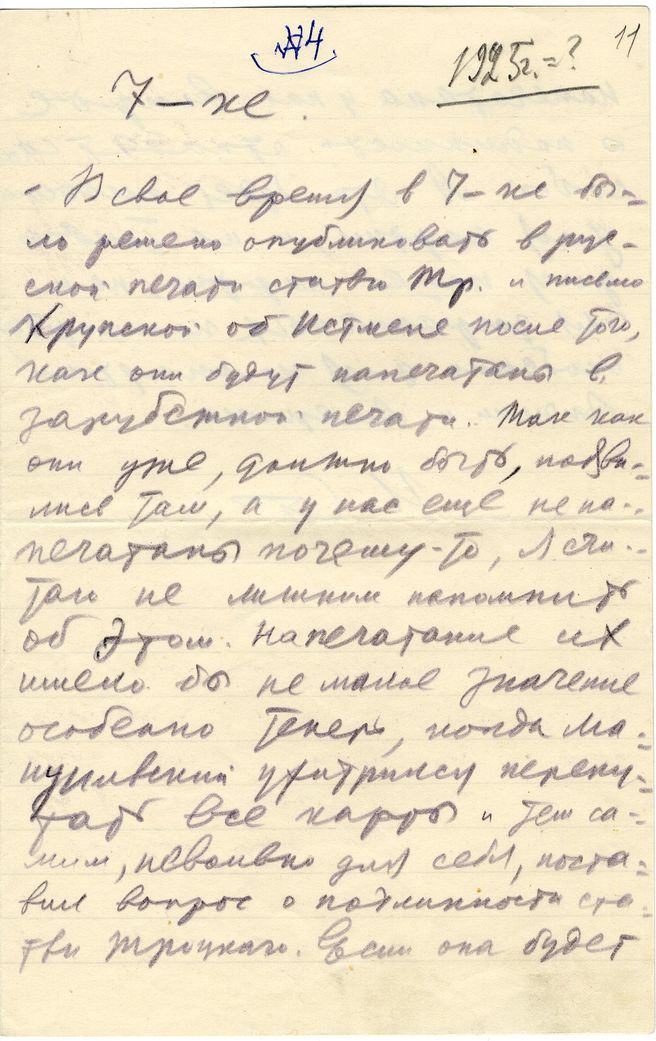 №4
1925 г. = ?
11
7–ке.
– В свое время в 7–ке бы-
ло решено опубликовать в рус-
ской печати статью Тр. и письмо
Крупской об Истмене после того,
как они будут напечатаны в
зарубежной печати. Так как
они уже, должно быть, появи-
лись там, а у нас еще не на-
печатаны почему-то, я счи-
таю не лишним напомнить
об этом. Напечатание их
имело бы не малое значение
особенно теперь, когда Ма-
нуильский ухитрился перепу-
тать все карты и тем са-
мим, невольно для себя, поста-
вил вопрос о подлинности ста-
тьи Троцкаго. Если она будет